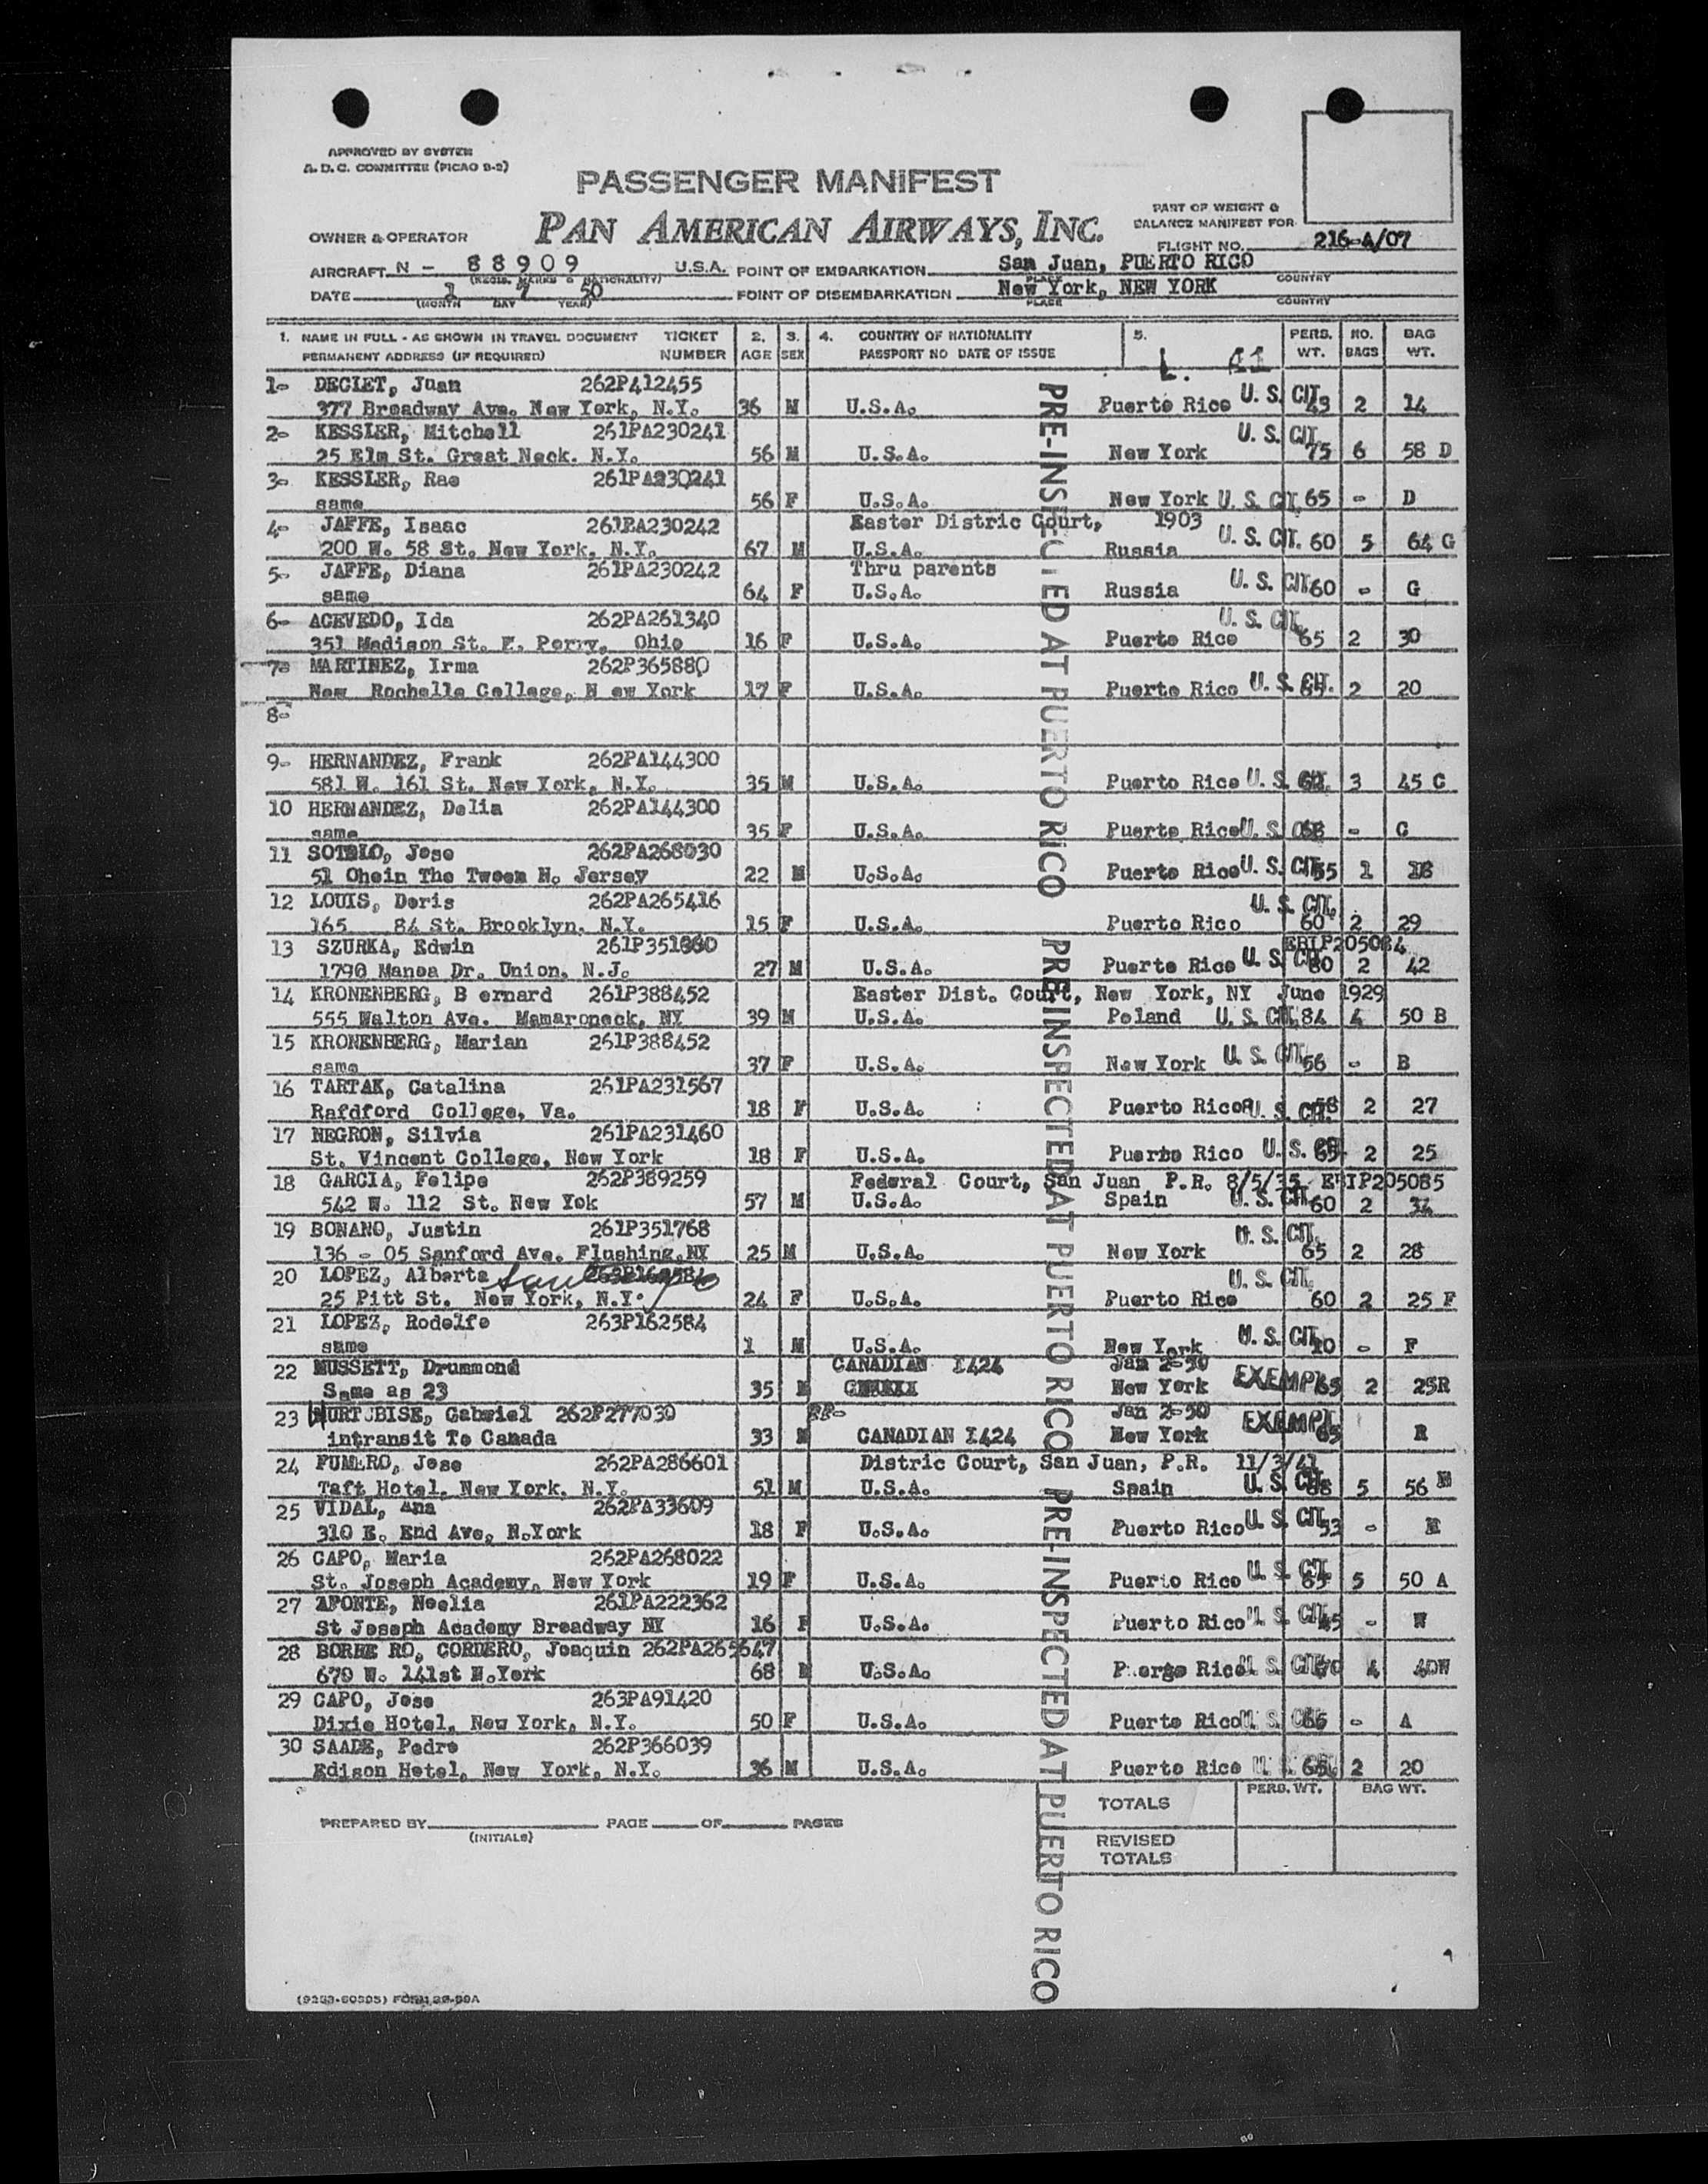 APPROVED BY SYSTEM
A.D.C. COMMITTEE (PICAO 9-2)
PASSENGER MANIFEST
PART OF WEIGHT &
BALANCE MANIFEST FOR
OWNER & OPERATOR PAN AMERICAN AIRWAYS, INC.
FLIGHT NO. 216-A/07
AIRCRAFT N - 88909 U.S.A. POINT OF EMBARKATION San Juan, PUERTO RICO
(REGIS. MARKS & NATIONALITY) PLACE COUNTRY
DATE 1 7 50 POINT OF DISEMBARKATION New York, NEW YORK
(MONTH DAY YEAR) PLACE COUNTRY
1. NAME IN FULL - AS SHOWN IN TRAVEL DOCUMENT TICKET 2. 3. 4. COUNTRY OF NATIONALITY 5. PERS. NO. BAG
PERMANENT ADDRESS (IF REQUIRED) NUMBER AGE SEX PASSPORT NO DATE OF ISSUE L. 41 WT. BAGS WT.
1- DECLET, Juan 262P412455
377 Broadway Ave. New York, N.Y. 36 M U.S.A. Puerto Rico U. S. CIT. 2 14
2- KESSLER, Mitchell 261PA230241
25 Elm St. Great Neck. N.Y. 56 M U.S.A. New York U. S. CIT. 75 6 58 D
3- KESSLER, Rae 261PA230241
same 56 F U.S.A. New York U. S. CIT. 65 - D
4- JAFFE, Isaac 261PA230242 Easter Distric Court, 1903
200 W. 58 St. New York, N.Y. 67 M U.S.A. Russia U. S. CIT. 60 5 64 G
5- JAFFE, Diana 261PA230242 Thru parents
same 64 F U.S.A. Russia U. S. CIT. 60 - G
6- ACEVEDO, Ida 262PA261340
351 Madison St. F. Perry, Ohio 16 F U.S.A. Puerto Rico U. S. CIT. 65 2 30
7- MARTINEZ, Irma 262P365880
New Rochelle College, N ew York 17 F U.S.A. Puerto Rico U. S. CIT. 2 20
8-
9- HERNANDEZ, Frank 262PA144300
581 W. 161 St. New York, N.Y. 35 M U.S.A. Puerto Rico U. S. CIT. 3 45 C
10 HERNANDEZ, Delia 262PA144300
same 35 F U.S.A. Puerto Rico U. S. - C
11 SOTELO, Jose 262PA268030
51 Ohein The Tween N. Jersey 22 M U.S.A. Puerto Rico U. S. CIT. 55 1 18
12 LOUIS, Doris 262PA265416
165 84 St. Brooklyn, N.Y. 15 F U.S.A. Puerto Rico U. S. CIT. 60 2 29
13 SZURKA, Edwin 261P351880 EBIP205084
1790 Manea Dr. Union, N.J. 27 M U.S.A. Puerto Rico U. S. CIT. 80 2 42
14 KRONENBERG, B ernard 261P388452 Easter Dist. Court, New York, NY June 1929
555 Walton Ave. Mamaroneck, NY 39 M U.S.A. Poland U. S. CIT. 84 4 50 B
15 KRONENBERG, Marian 261P388452
same 37 F U.S.A. New York U. S. CIT. 56 - B
16 TARTAK, Catalina 261PA231567
Rafdford College, Va. 18 F U.S.A. Puerto Rico U. S. CIT. 58 2 27
17 NEGRON, Silvia 261PA231460
St. Vincent College, New York 18 F U.S.A. Puerto Rico U. S. 2 25
18 GARCIA, Felipe 262P389259 Federal Court, San Juan P.R. 8/5/35 EBIP205085
542 W. 112 St. New Yok 57 M U.S.A. Spain U. S. CIT. 60 2 34
19 BONANO, Justin 261P351768
136 - 05 Sanford Ave. Flushing,NY 25 M U.S.A. New York U. S. CIT. 65 2 28
20 LOPEZ, Alberta
25 Pitt St. New York, N.Y. 24 F U.S.A. Puerto Rico U. S. CIT. 60 2 25 F
21 LOPEZ, Rodolfo 263P162584
same 1 M U.S.A. New York U. S. CIT. - F
22 MUSSETT, Drummond CANADIAN I424 Jan 2-50
Same as 23 35 M New York EXEMPT 65 2 25R
23 HURTUBISE, Gabriel 262P277030 Jan 2-50
intransit To Canada 33 M CANADIAN I424 New York EXEMPT 65 R
24 FUMERO, Jose 262PA286601 Distric Court, San Juan, P.R. 11/3/41
Taft Hotel, New York, N.Y. 51 M U.S.A. Spain U. S. CIT. 5 56
25 VIDAL, Ana 262PA33609
310 E. End Ave, N.York 18 F U.S.A. Puerto Rico U. S. CIT. 53 -
26 CAPO, Maria 262PA268022
St. Joseph Academy, New York 19 F U.S.A. Puerto Rico U. S. CIT. 65 5 50 A
27 APONTE, Noelia 261PA222362
St Joseph Academy Broadway NY 16 F U.S.A. Puerto Rico U. S. CIT. 45 - W
28 BORRE RO, CORDERO, Joaquin 262PA265647
670 W. 141st N.York 68 M U.S.A. Puerto Rico U. S. CIT. 70 4 40W
29 CAPO, Jose 263PA91420
Dixie Hotel, New York, N.Y. 50 F U.S.A. Puerto Rico U. S. - A
30 SAADE, Pedro 262P366039
Edison Hotel, New York, N.Y. 36 M U.S.A. Puerto Rico U. S. 2 20
PRE-INSPECTED AT PUERTO RICO
PRE-INSPECTED AT PUERTO RICO
PRE-INSPECTED AT PUERTO RICO
PERS. WT. BAG WT.
TOTALS
PREPARED BY PAGE OF PAGES
(INITIALS)
REVISED
TOTALS